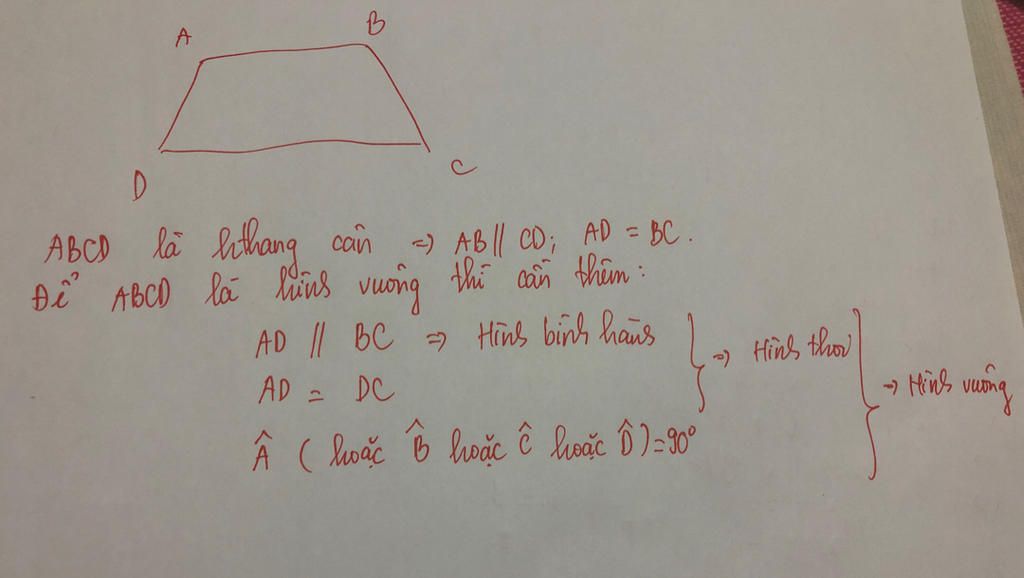 A
B
D
C
ABCD là hthang cân => AB // CD; AD = BC.
Để ABCD là hình vuông thì cần thêm:
AD // BC => Hình bình hành } => Hình thoi } => Hình vuông
AD = DC
Â ( hoặc B̂ hoặc Ĉ hoặc D̂ ) = 90°